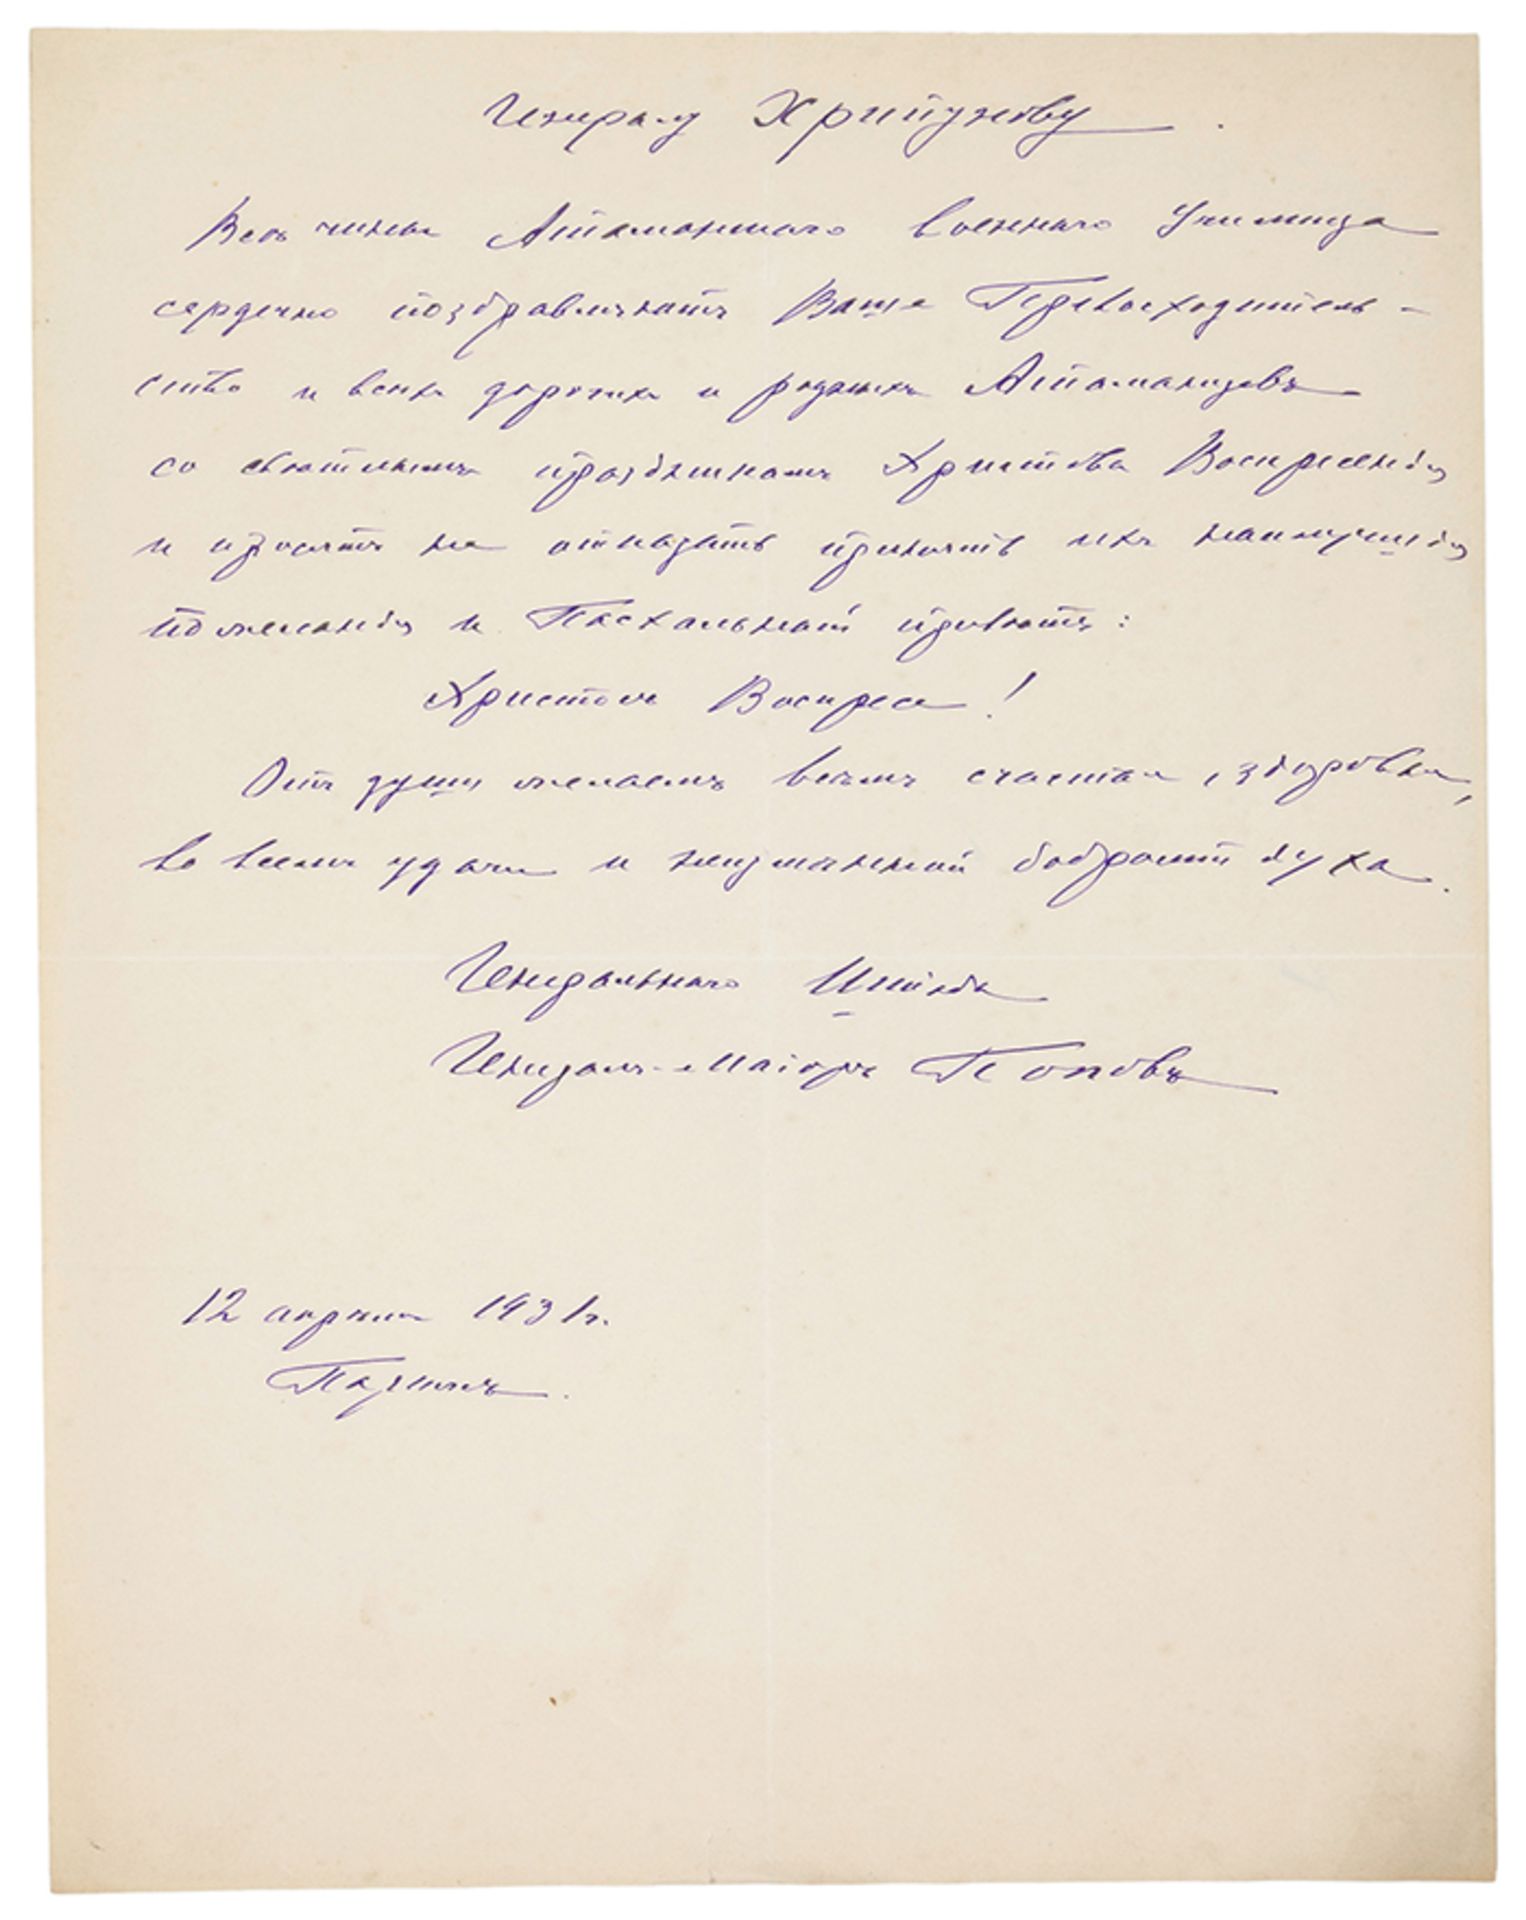 Генералу Хрипунову.
Всѣ чины Атаманскаго Военнаго Училища
сердечно поздравляютъ Ваше Превосходитель-
ство и всѣхъ дорогихъ и родныхъ Атаманцевъ
со свѣтлымъ праздникомъ Христова Воскресенія
и просятъ не отказать принять ихъ наилучшія
пожеланія и Пасхальный привѣтъ:
Христосъ Воскресе!
Отъ души желаемъ всѣмъ счастья, здоровья,
во всемъ удачи и неизмѣнной бодрости духа.
Генеральнаго Штаба
Генералъ-Маіоръ Поповъ
12 апрѣля 1931 г.
Парижъ.